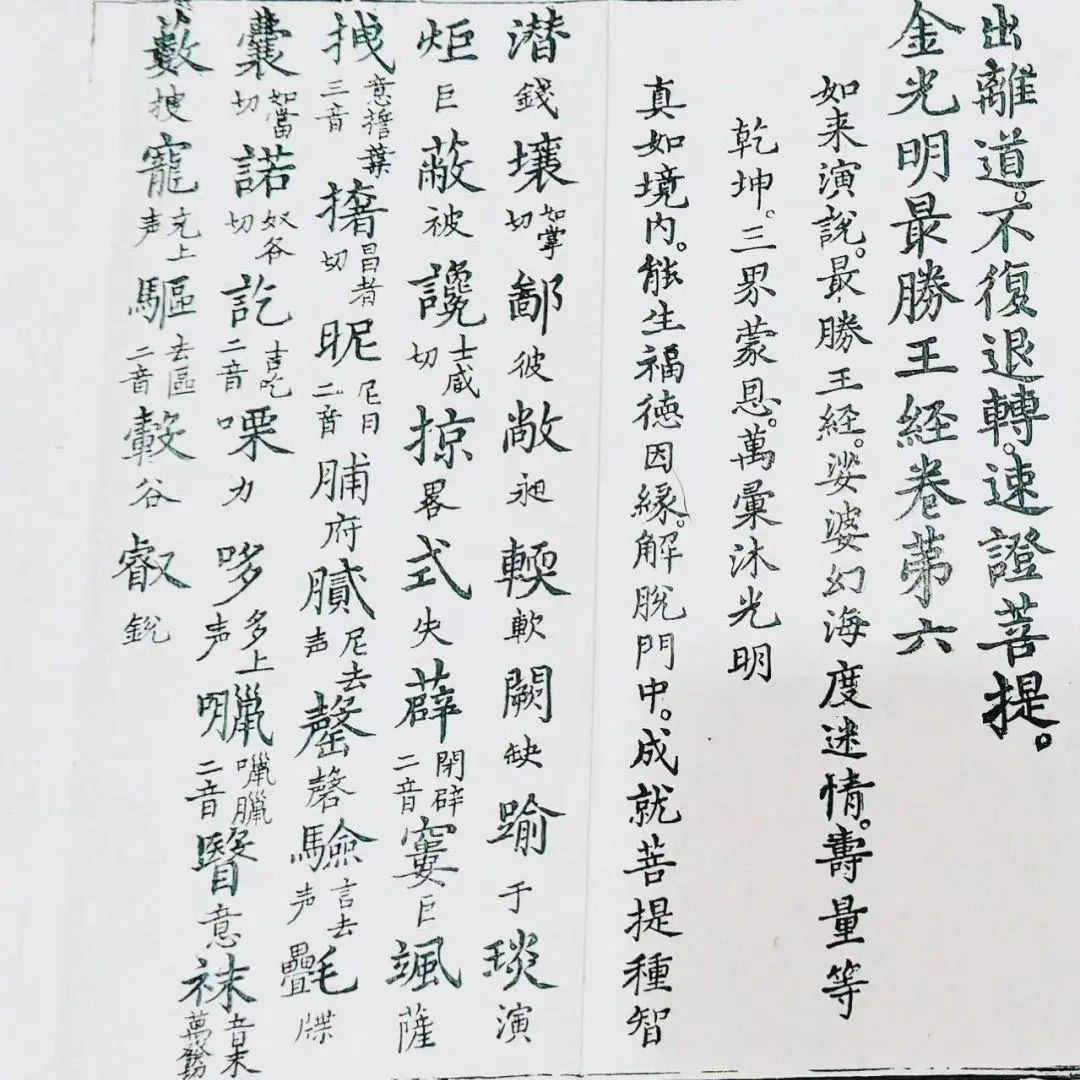 出離道。不復退轉。速證菩提。
金光明最勝王経卷苐六
如来演說。最勝王経。娑婆幻海度迷情。壽量等
乾坤。三界蒙恩。萬彙沐光明
真如境內。能生福德因緣。解脫門中。成就菩提種智
潛 錢 壤 如掌切 鄙 彼 敞 昶 輭 軟 闕 缺 踰 于 琰 演
炬 巨 蔽 被 讒 士咸切 掠 畧 式 失 薜 閉辟二音 窶 巨 颯 薩
拽 意擔葉三音 撦 昌者切 昵 尼日二音 脯 府 膩 尼去声 罄 磬 驗 言去声 氎 牒
囊 如當切 諾 奴谷切 訖 吉吃二音 㗚 力 哆 多上声 臘 囒臘二音 瞖 意 袜 音末 萬發
藪 捜 寵 充上声 驅 去區二音 轂 谷 叡 銳